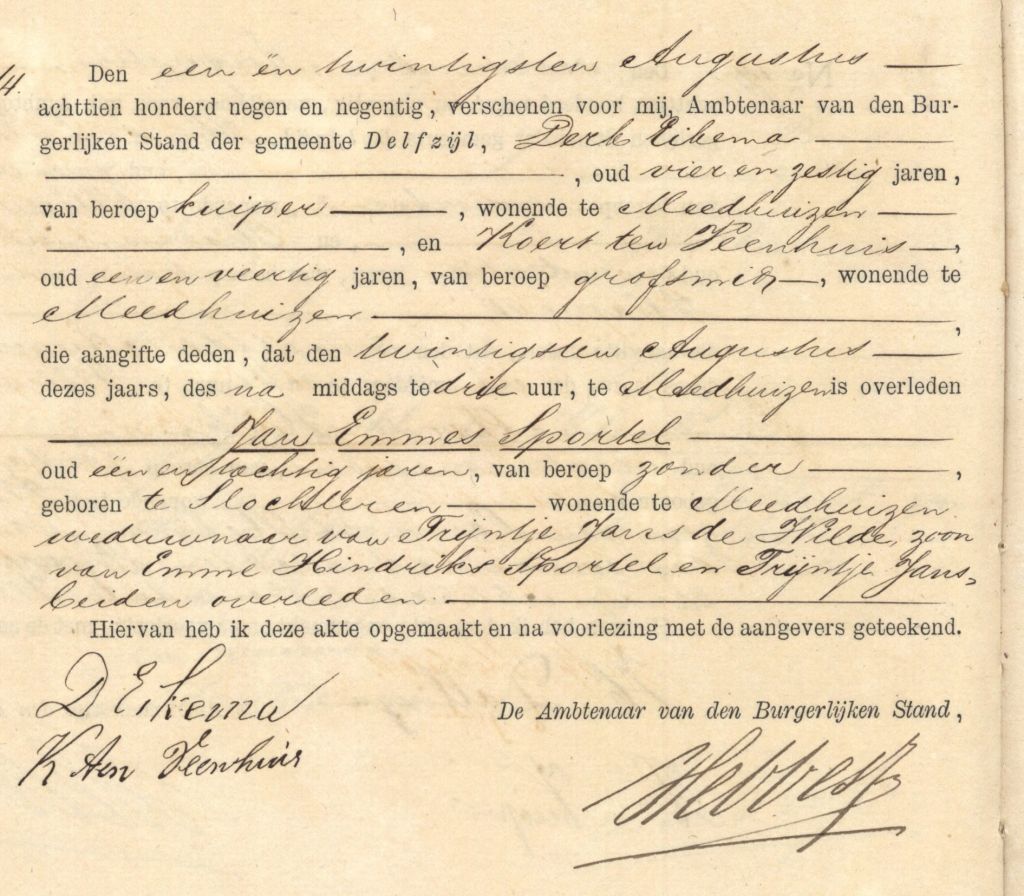 14.
Den een en twintigsten Augustus
achttien honderd negen en negentig, verschenen voor mij, Ambtenaar van den Bur-
gerlijken Stand der gemeente Delfzijl, Derk Eikema
, oud vier en zestig jaren,
van beroep kuiper, wonende te Meedhuizen
, en Koert ten Veenhuis,
oud een en veertig jaren, van beroep grofsmid, wonende te
Meedhuizen,
die aangifte deden, dat den twintigsten Augustus
dezes jaars, des na middags te drie uur, te Meedhuizen is overleden
Jan Emmes Sportel
oud één en tachtig jaren, van beroep zonder,
geboren te Slochteren wonende te Meedhuizen
weduwnaar van Trijntje Jans de Wilde, zoon
van Emme Hindriks Sportel en Trijntje Jans,
beiden overleden.
Hiervan heb ik deze akte opgemaakt en na voorlezing met de aangevers geteekend.
D Eikema
De Ambtenaar van den Burgerlijken Stand,
K ten Veenhuis